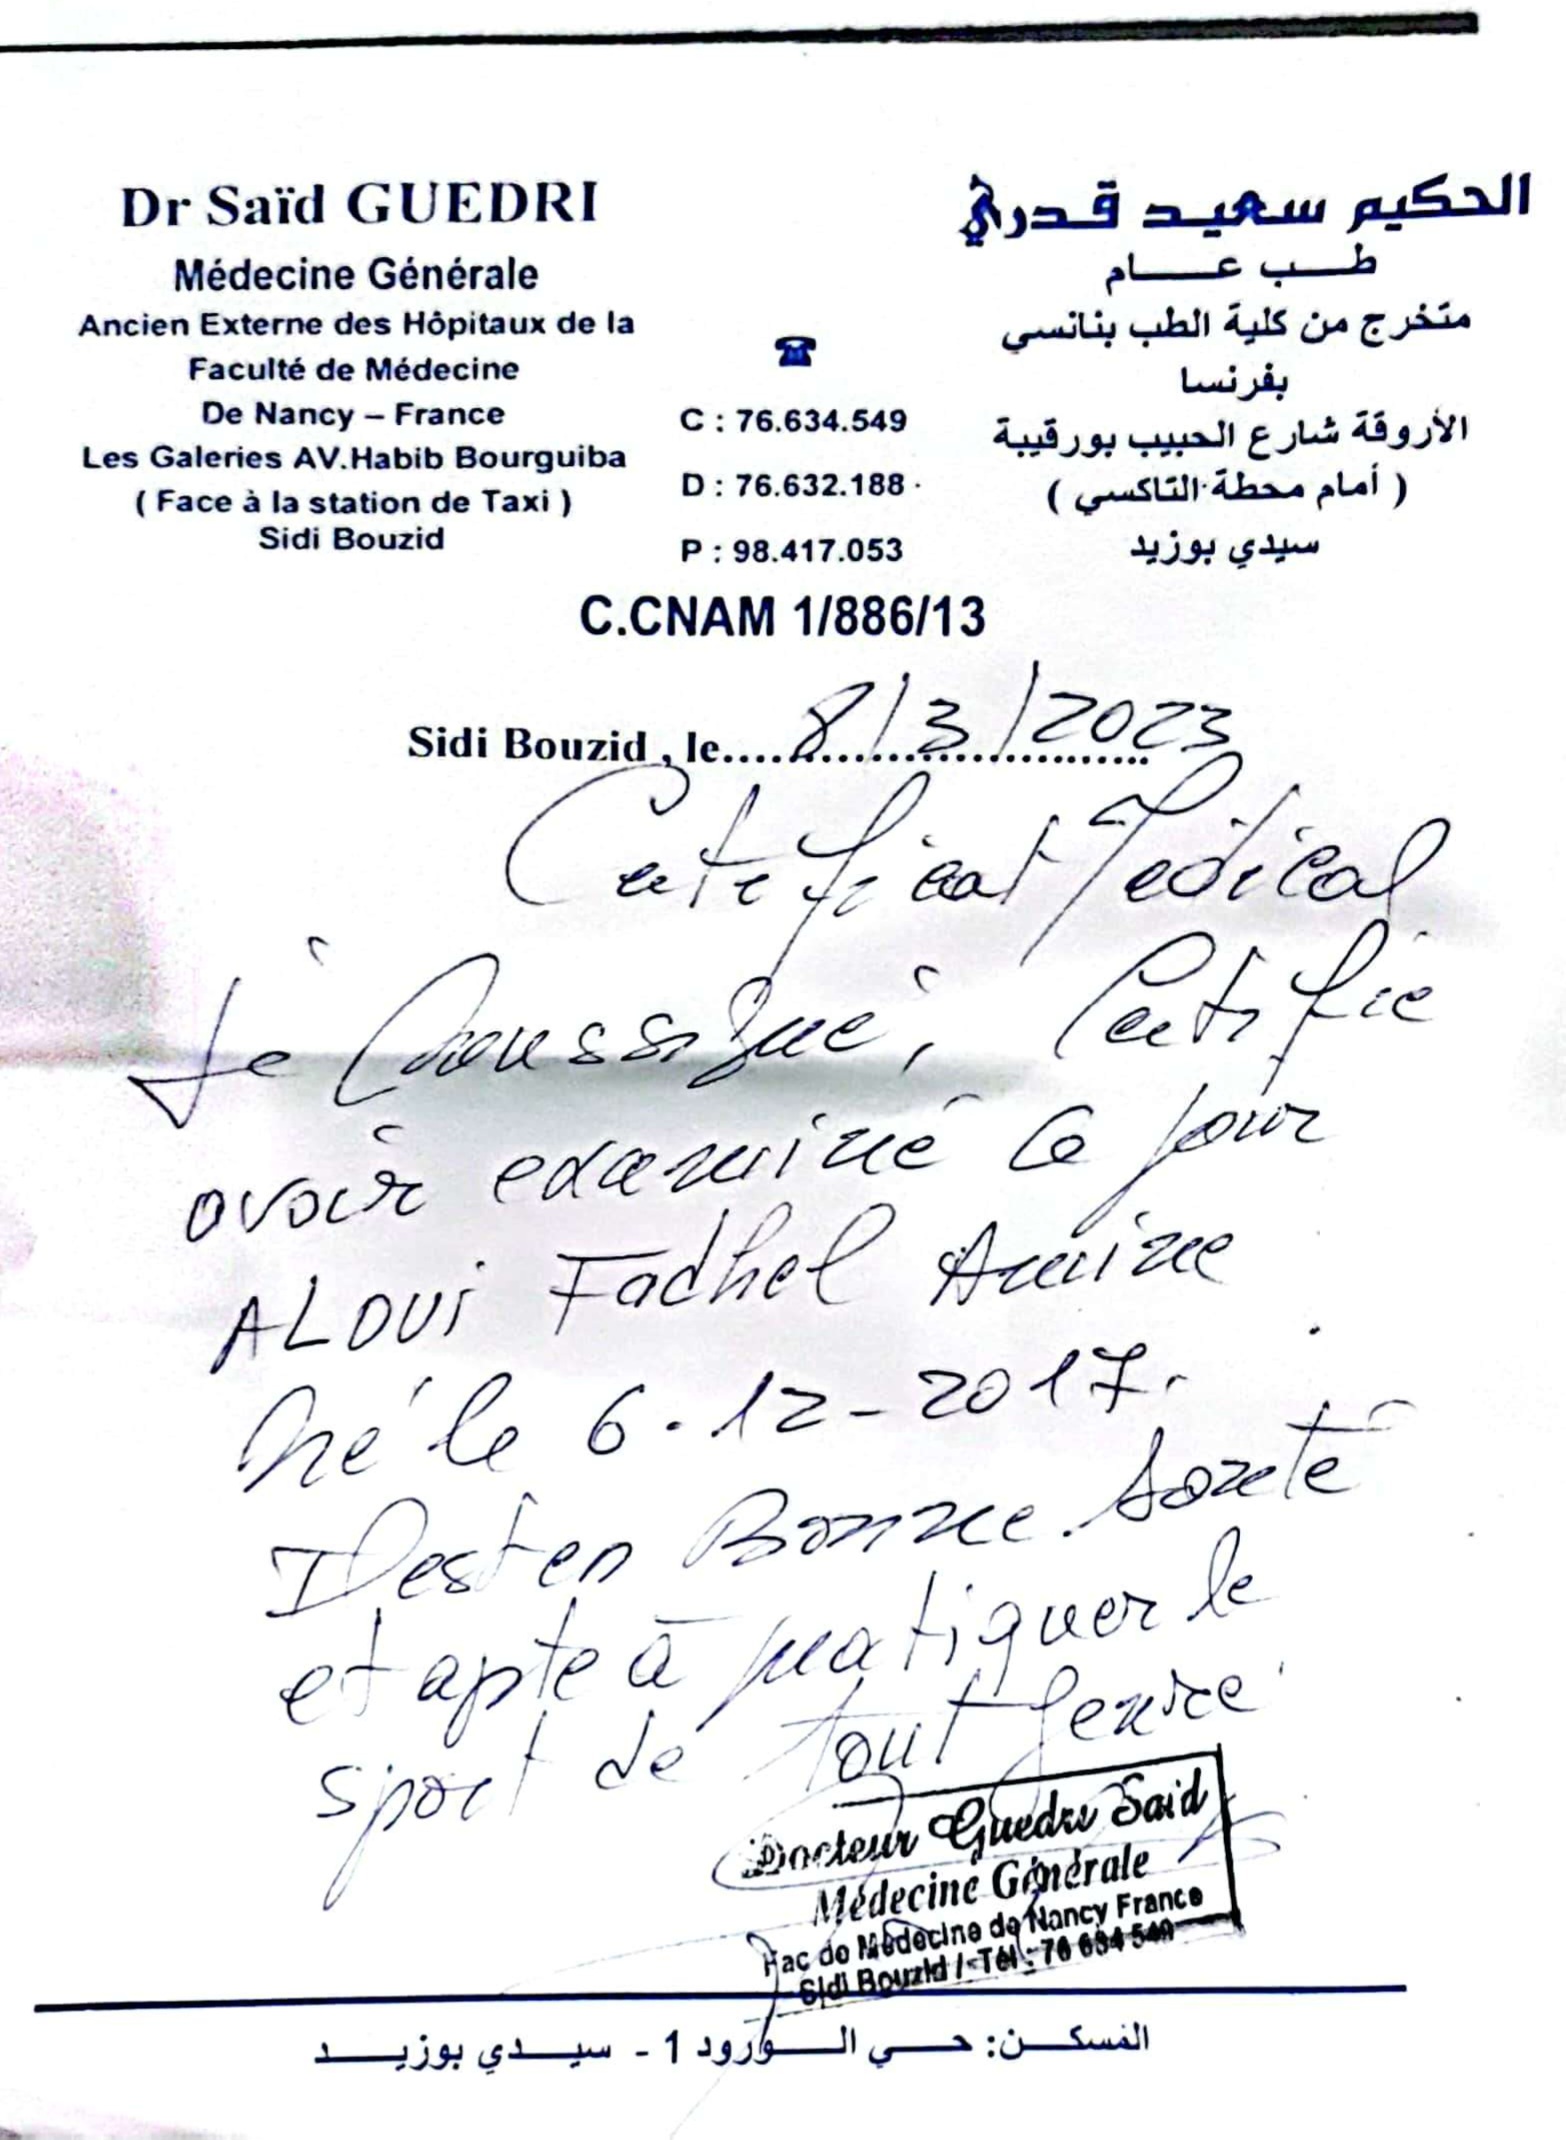 Dr Saïd GUEDRI
Médecine Générale
Ancien Externe des Hôpitaux de la
Faculté de Médecine
De Nancy – France
Les Galeries AV.Habib Bourguiba
( Face à la station de Taxi )
Sidi Bouzid
☎
C : 76.634.549
D : 76.632.188
P : 98.417.053
الحكيم سعيد قدري
طب عام
متخرج من كلية الطب بنانسي
بفرنسا
الأروقة شارع الحبيب بورقيبة
( أمام محطة التاكسي )
سيدي بوزيد
C.CNAM 1/886/13
Sidi Bouzid , le 8/3/2023
Certificat Médical
Je soussigné, Certifie
avoir examiné ce jour
ALOUi Fadhel Amine
né le 6-12-2017.
Il est en Bonne santé
et apte à pratiquer le
sport de tout genre
Docteur Guedri Said
Médecine Générale
Fac de Médecine de Nancy France
Sidi Bouzid / Tél : 76 634 549
المسكن: حي الورود 1 - سيدي بوزيد